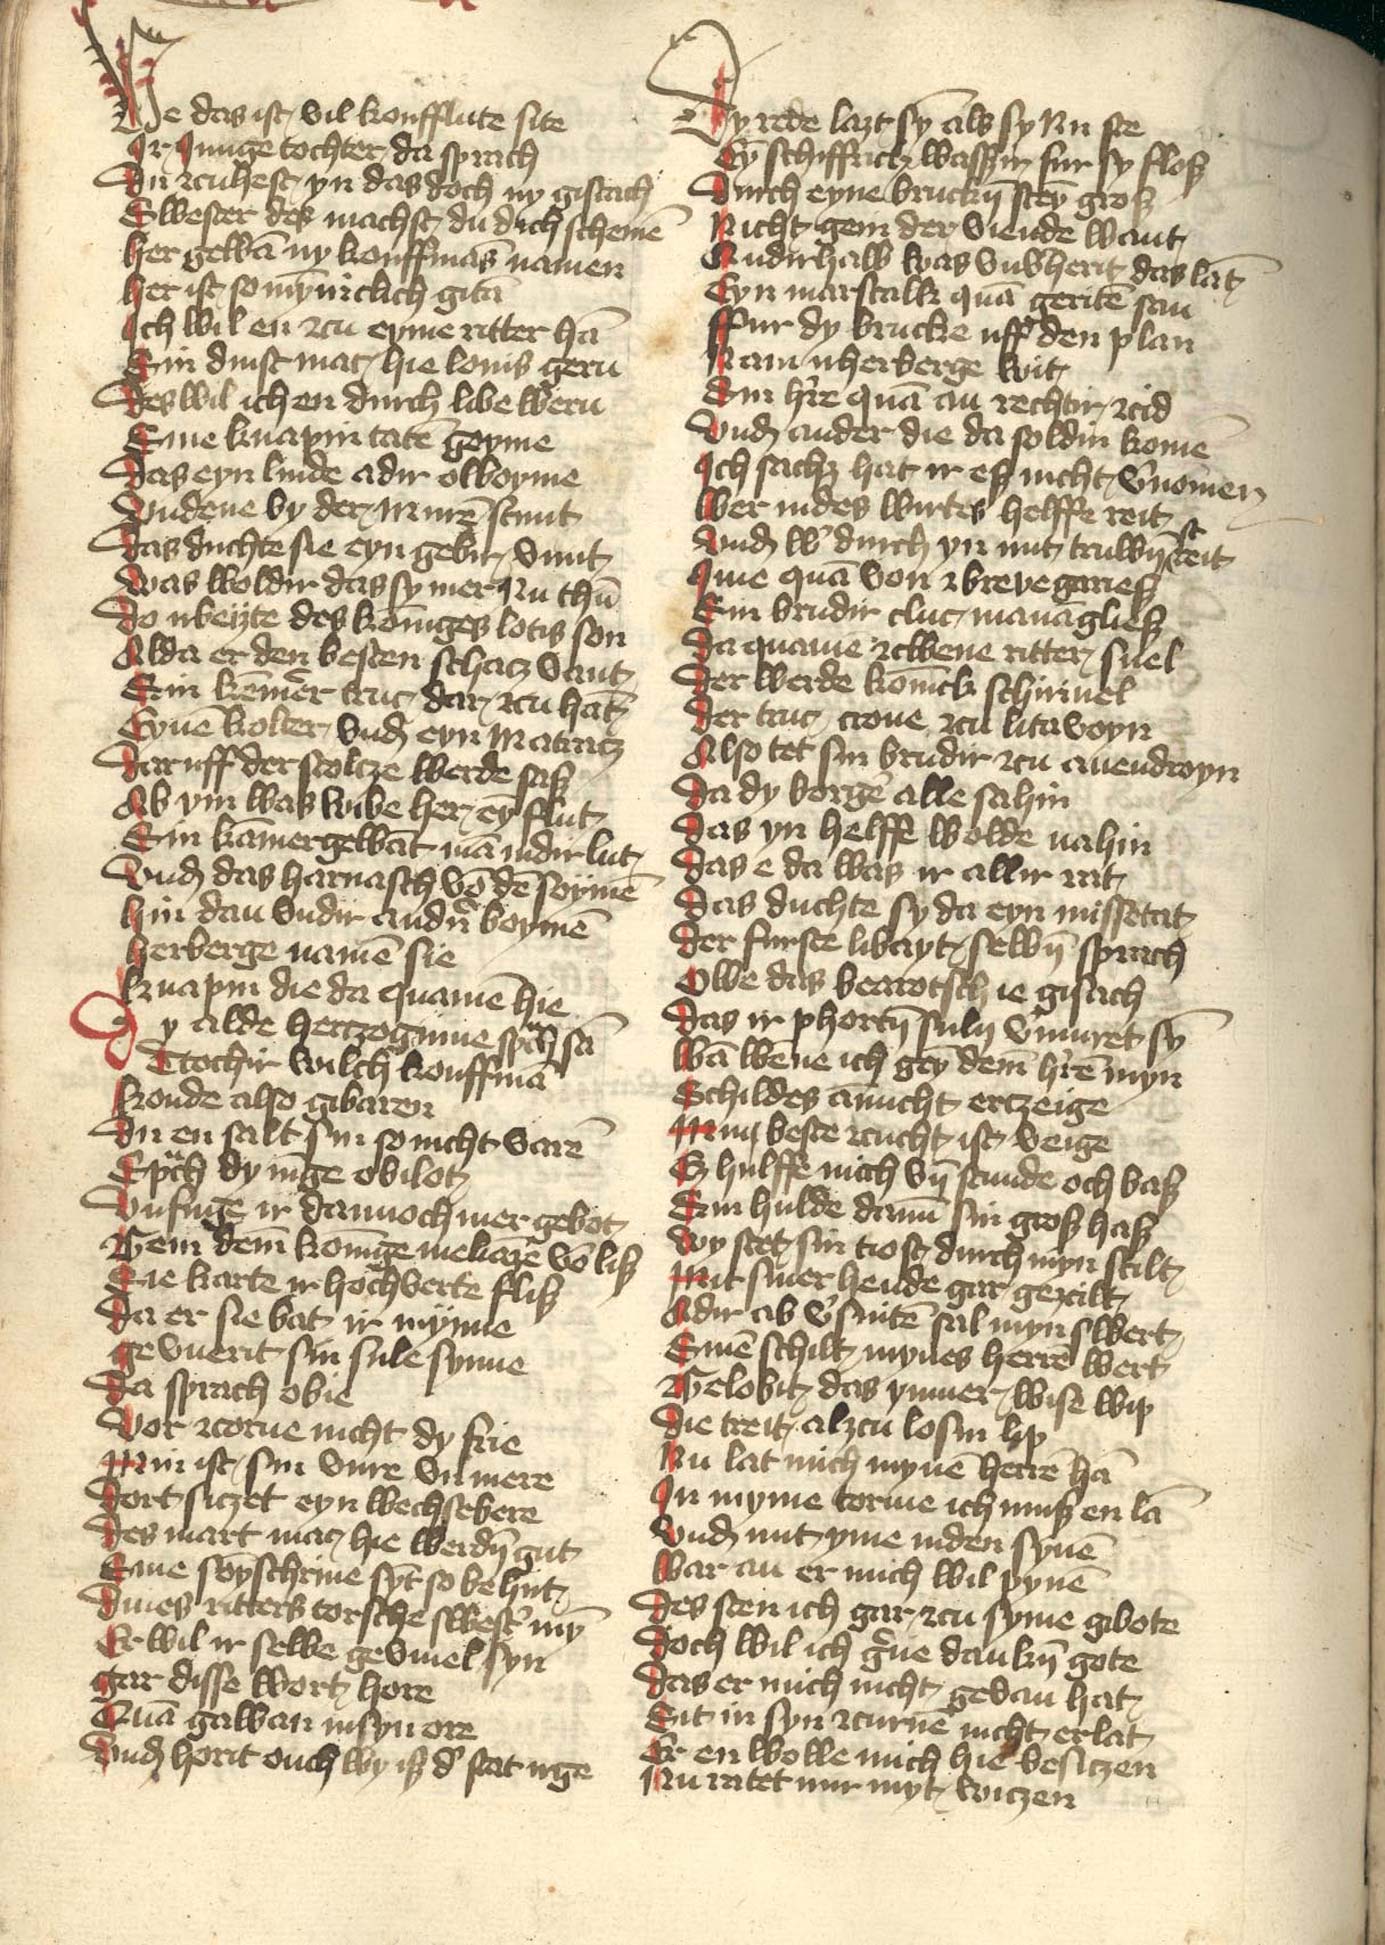 We das ist vil koufflute site
Ir Junge tochter da sprach
Du zcuhest yn das doch ny gischach
Swester des machst du dich schemē
her gewā ny kouffmās namen
her ist so mȳnīclich gitā
Ich wil en zcu eyme ritter hā
Sin dinst mac hie lonis gern
Des wil ich en durch libe wern
Sine knapin tatē goyme
Das eyn linde adir olboyme
Vndene by der Murē stunt
Das duchte sie eyn gebir vunt
was woldir das sy mer Nu thū
Do irbeyzte des kōniges lotis son
Alda er den besten schatz vant
Sin kēmer͛ truc dar zcu hāt
Eynē kolter vnd eyn Matratz
Dar uff der stoltze werde saß
Ab ym was wibe her eȳ flut
Sin kāmergewāt mā nidir lut
Vnd das harnasch vō dē soymē
hin dan vndir andir͛ boymē
herberge namē sie
knapin die da quamē hie
Dy alde hertzoginne sp͛ch sā
Ttochir wilch kouffmā
konde also gibaren
Du en salt sin so nicht varē
Sp͛ch dy iūge obilot
Vnfuge ir dannoch mer gebot
Gein dem konīge meliaczē vō liß
Sie karte ir hochverte fliß
Da er sie bat ir mynne
geVnerit sin sule synne
Da sprach obie
Vor zcorne nicht dy frie
Min ist sin vure vnmere
Dort siczet eyn wechselere
Des mart mac hie werdn̄ gut
Sine soyschrine syt so behut
Dines ritters torsche swest͛ myn
Er wil ir selbe geVmel syn
gar disse wort hore
Quā gawan in syn ore
Vnd horit ouch wy iß d͛ stat irge
Dy rede lazt sȳ als sy Nu ste
Eȳ schiffrich wasszir fur sy floß
Durch eyne bruckn̄ steȳ groß
Nicht gein der viende want
Andirhalb was vnv͛herit das lāt
Eyn marstalk quā geritē san
ffur dy brucke uff den plan
Nam ir herberge wit
Sin h͛re quā an rechtir zcid
Vnd ander die da soldin komē
Ich sachz hat ir eß nicht v͛nomen
Wer in des wirtes helffe reit
Vnd w͛ durch yn mit truwn̄ streit
Ime quā von zbrevegarieß
Sin brudir cluc manāgließ
Da quamē zcwene ritter snel
Der werde kōnick schirniel
Der truc crone zcu litavoyn
Also tet sin brudir zcu avendroyn
Da dy borgē alle sahin
Das yn helffe wolde nahin
Das e da was ir allir rat
Das duchte sy da eyn missetat
Der furste libayt selwn̄ sprach
Owe das bearotsch ie gisach
Das ir phortn̄ suln v͛muret sȳ
Wā wēne ich geȳ dem h͛rē myn
Schildes ammcht ertzeige
Min beste zcucht ist veige
Ez hulffe mich vn̄ stunde och baß
Sin hulde dann sin groß haß
Wy stet sin tiost durch myn schilt
Mit siner hende gar gezcilt
Adir ab v͛snitē sal myn swert
Sinē schilt mynes herrē wert
Gelobit das ymmer wise wip
Die treit alzcu losin lip
Nu lat mich mynē herrē hā
In myme torme ich muß en lā
Vnd mit yme in den synē
War an er mich wil pynē
Des sten ich gar zcu syme gibote
Doch wil ich g͛ne dankn̄ gote
Das er mich nicht gevan hat
Sit in syn zcurnē nicht erlat
Er en wolle mich hie besiczen
Nu ratet mir myt wiczen